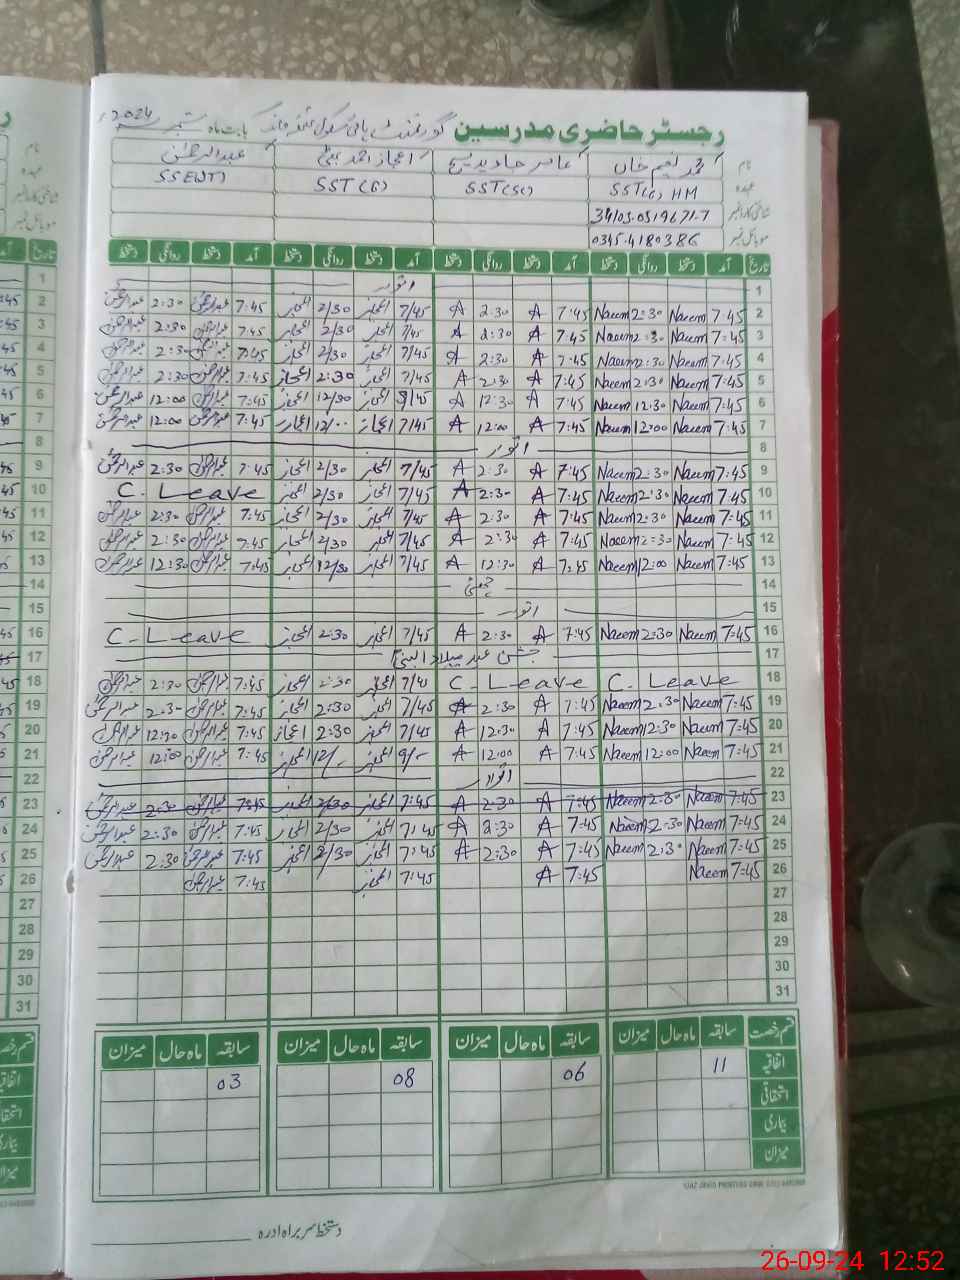 رجسٹر حاضری مدرسین گورنمنٹ ہائی سکول بابت ماہ ستمبر 2024ء
نام محمد نعیم خاں اعجاز احمد عبدالرحمن
عہدہ SST(G) HM SST(SC) SST(G) SSE(WT)
شناختی کارڈ نمبر
موبائل نمبر 0345-4180386
تاریخ آمد دستخط روانگی دستخط آمد دستخط روانگی دستخط آمد دستخط روانگی دستخط آمد دستخط روانگی دستخط
1 اتوار
2 7:45 Naeem 2:30 Naeem 7:45 A 2:30 A 7/45 اعجاز 2/30 اعجاز 7:45 عبدالرحمن 2:30 عبدالرحمن
3 7:45 Naeem 2:30 Naeem 7:45 A 2:30 A 7/45 اعجاز 2/30 اعجاز 7:45 عبدالرحمن 2:30 عبدالرحمن
4 7:45 Naeem 2:30 Naeem 7:45 A 2:30 A 7/45 اعجاز 2/30 اعجاز 7:45 عبدالرحمن 2:30 عبدالرحمن
5 7:45 Naeem 2:30 Naeem 7:45 A 2:30 A 7/45 اعجاز 2:30 اعجاز 7:45 عبدالرحمن 2:30 عبدالرحمن
6 7:45 Naeem 12:30 Naeem 7:45 A 12:30 A اعجاز 12/30 اعجاز 7:45 عبدالرحمن 12:00 عبدالرحمن
7 7:45 Naeem 12:00 Naeem 7:45 A 12:00 A 7/45 اعجاز 12/00 اعجاز 7:45 عبدالرحمن 12:00 عبدالرحمن
8 اتوار
9 7:45 Naeem 2:30 Naeem 7:45 A 2:30 A 7/45 اعجاز 2/30 اعجاز 7:45 عبدالرحمن 2:30 عبدالرحمن
10 7:45 Naeem 2:30 Naeem 7:45 A 2:30 A 7/45 اعجاز 2/30 اعجاز C. Leave
11 7:45 Naeem 2:30 Naeem 7:45 A 2:30 A 7/45 اعجاز 2/30 اعجاز 7:45 عبدالرحمن 2:30 عبدالرحمن
12 7:45 Naeem 2:30 Naeem 7:45 A 2:30 A 7/45 اعجاز 2/30 اعجاز 7:45 عبدالرحمن 2:30 عبدالرحمن
13 7:45 Naeem 12:00 Naeem 7:45 A 12:30 A 7/45 اعجاز 12/30 اعجاز 7:45 عبدالرحمن 12:30 عبدالرحمن
14 چھٹی
15 اتوار
16 7:45 Naeem 2:30 Naeem 7:45 A 2:30 A 7/45 اعجاز 2:30 اعجاز C. Leave
17 جشن عید میلاد النبیؐ
18 C. Leave C. Leave 7/45 اعجاز 2:30 اعجاز 7:45 عبدالرحمن 2:30 عبدالرحمن
19 7:45 Naeem 2:30 Naeem 7:45 A 2:30 A 7/45 اعجاز 2:30 اعجاز 7:45 عبدالرحمن 2:30 عبدالرحمن
20 7:45 Naeem 12:30 Naeem 7:45 A 12:30 A 7/45 اعجاز 2:30 اعجاز 7:45 عبدالرحمن 12:30 عبدالرحمن
21 7:45 Naeem 12:00 Naeem 7:45 A 12:00 A اعجاز 12/- اعجاز 7:45 عبدالرحمن 12:00 عبدالرحمن
22 اتوار
23 7:45 Naeem 2:30 Naeem 7:45 A 2:30 A 7:45 اعجاز 2/30 اعجاز 7:45 عبدالرحمن 2:30 عبدالرحمن
24 7:45 Naeem 2:30 Naeem 7:45 A 2:30 A 7:45 اعجاز 2/30 اعجاز 7:45 عبدالرحمن 2:30 عبدالرحمن
25 7:45 Naeem 2:30 Naeem 7:45 A 2:30 A 7:45 اعجاز 2/30 اعجاز 7:45 عبدالرحمن 2:30 عبدالرحمن
26 7:45 Naeem 7:45 A 7:45 اعجاز 7:45 عبدالرحمن
27
28
29
30
31
قسم رخصت سابقہ ماہ حال میزان سابقہ ماہ حال میزان سابقہ ماہ حال میزان سابقہ ماہ حال میزان
اتفاقیہ 11 06 08 03
استحقاقی
بیماری
میزان
دستخط سربراہ ادارہ
26-09-24 12:52